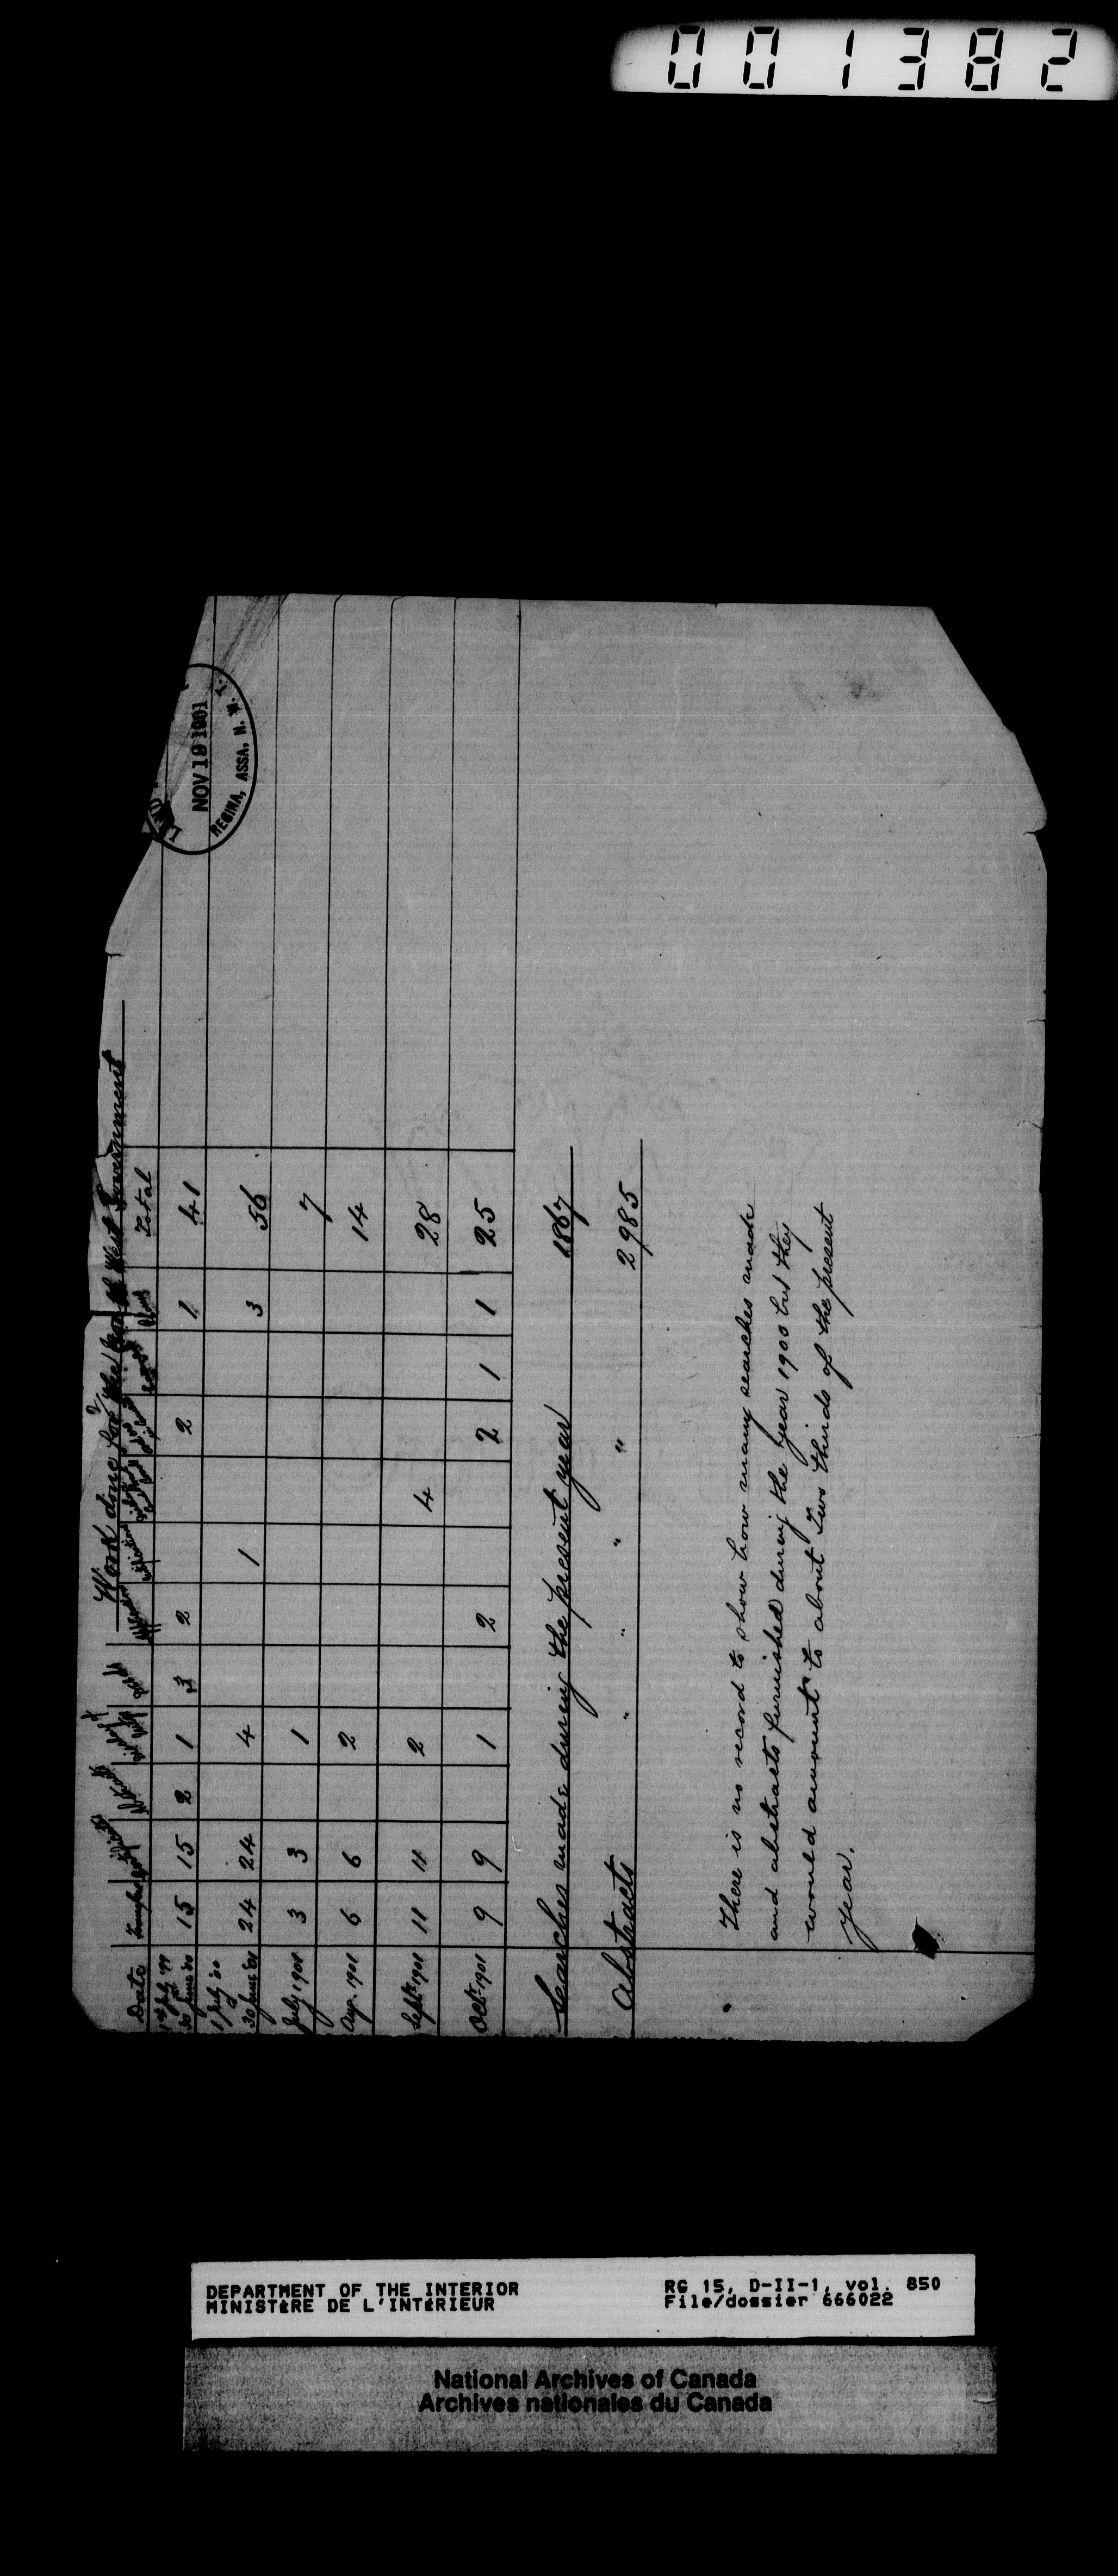 001382
Work done for the North West Government
Date Transfers Total
1st July '99 30 June '00 15 15 2 1 3 2 2 1 41
1 July '00 30 June '01 24 24 4 1 3 56
July 1901 3 3 1 7
Aug. 1901 6 6 2 14
Sept. 1901 11 11 2 4 28
Oct. 1901 9 9 1 2 2 1 1 25
Searches made during the present year 1867
Abstracts " " " " 2985
There is no record to show how many searches made
and abstracts furnished during the year 1900 but they
would amount to about Two thirds of the present
year.
NOV 19 1901
REGINA, ASSA, N. W. T.
DEPARTMENT OF THE INTERIOR
MINISTÈRE DE L'INTÉRIEUR
RG 15, D-II-1, vol. 850
File/dossier 666022
National Archives of Canada
Archives nationales du Canada